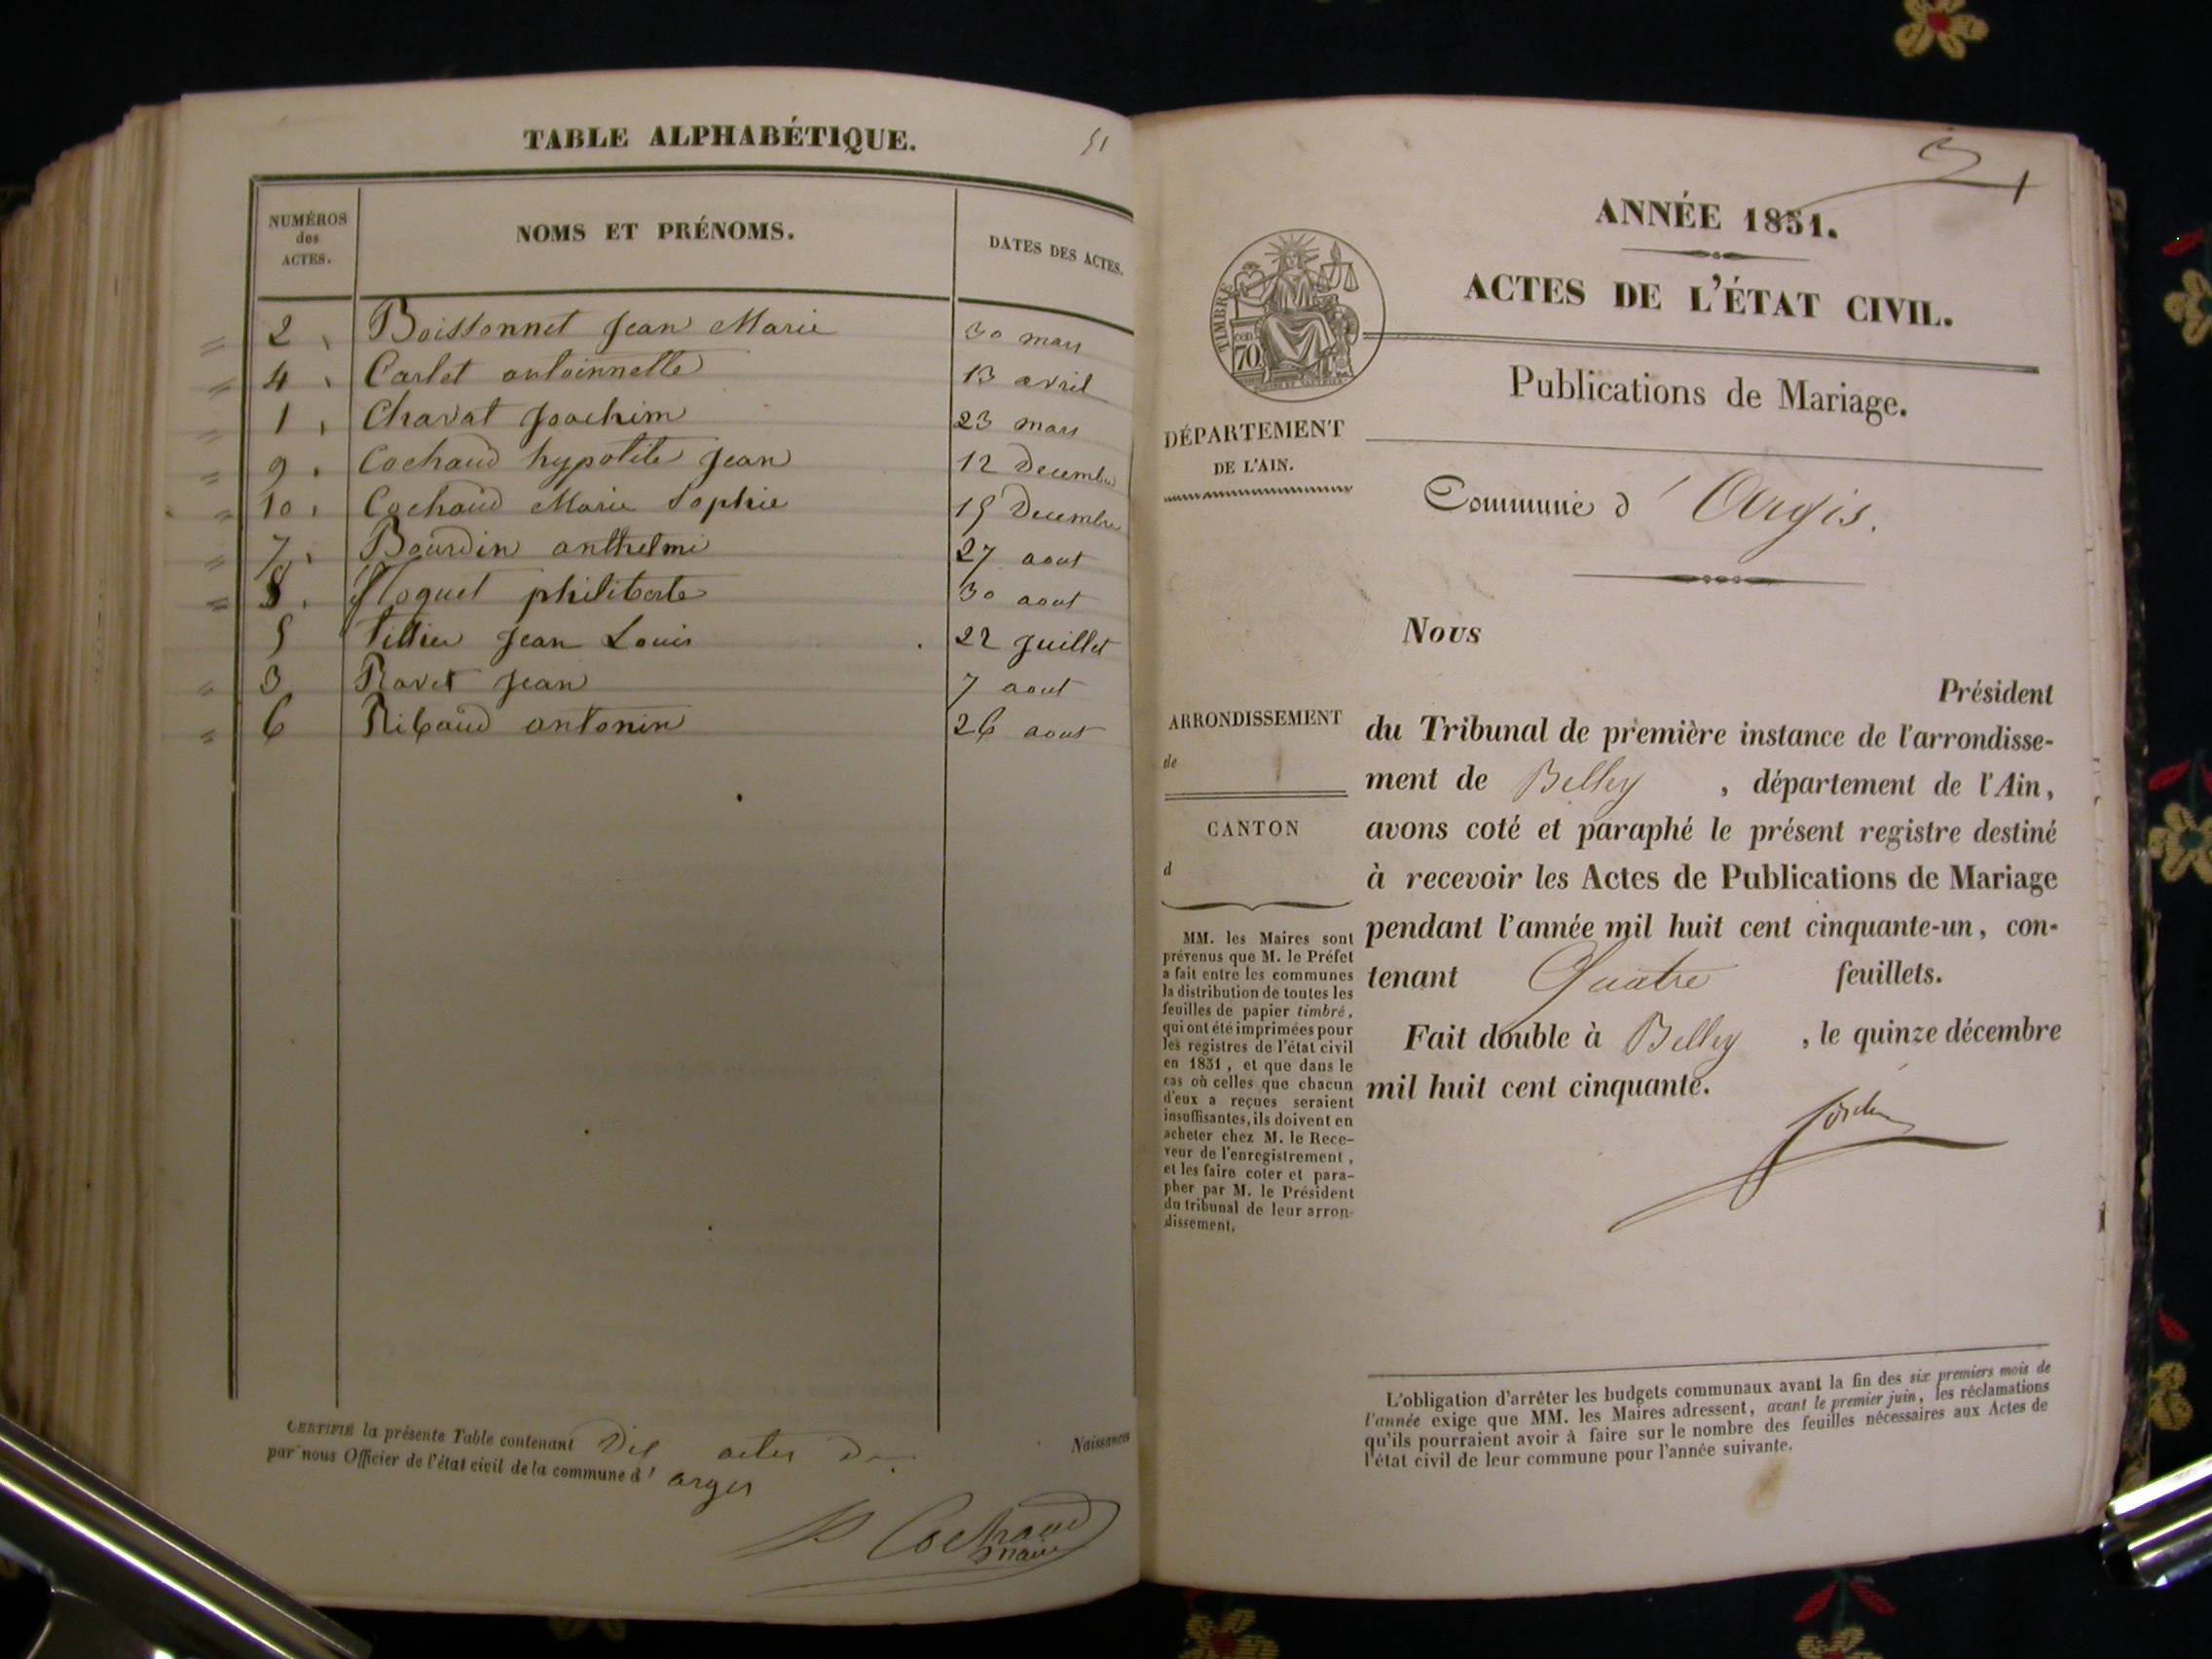 TABLE ALPHABÉTIQUE.
51
NUMÉROS
des
ACTES.
NOMS ET PRÉNOMS.
DATES DES ACTES.
2 Boissonnet Jean Marie 30 mars
4 Carlet antoinnette 13 avril
1 Charvat Joachim 23 mars
9 Cochaud hypolite Jean 12 Decembre
10 Cochaud Marie Sophie 19 Decembre
7 Bourdin anthelme 27 aout
8 philiberte 30 aout
5 Jean Louis 22 Juillet
3 Ravet Jean 7 aout
6 Ribaud antonin 26 aout
CERTIFIÉ la présente Table contenant Dix actes de Naissances
par nous Officier de l'état civil de la commune d' arges
Cochaud
maire
1
ANNÉE 1851.
ACTES DE L'ÉTAT CIVIL.
TIMBRE
cen
70
Publications de Mariage.
DÉPARTEMENT
DE L'AIN.
Commune d'Argis.
Nous
Président
ARRONDISSEMENT
de
CANTON
d
du Tribunal de première instance de l'arrondisse-
ment de Belley , département de l'Ain,
avons coté et paraphé le présent registre destiné
à recevoir les Actes de Publications de Mariage
pendant l'année mil huit cent cinquante-un, con-
tenant Quatre feuillets.
Fait double à Belley , le quinze décembre
mil huit cent cinquante.
MM. les Maires sont
prévenus que M. le Préfet
a fait entre les communes
la distribution de toutes les
feuilles de papier timbré,
qui ont été imprimées pour
les registres de l'état civil
en 1851, et que dans le
cas où celles que chacun
d'eux a reçues seraient
insuffisantes, ils doivent en
acheter chez M. le Rece-
veur de l'enregistrement,
et les faire coter et para-
pher par M. le Président
du tribunal de leur arron-
dissement.
L'obligation d'arrêter les budgets communaux avant la fin des six premiers mois de
l'année exige que MM. les Maires adressent, avant le premier juin, les réclamations
qu'ils pourraient avoir à faire sur le nombre des feuilles nécessaires aux Actes de
l'état civil de leur commune pour l'année suivante.